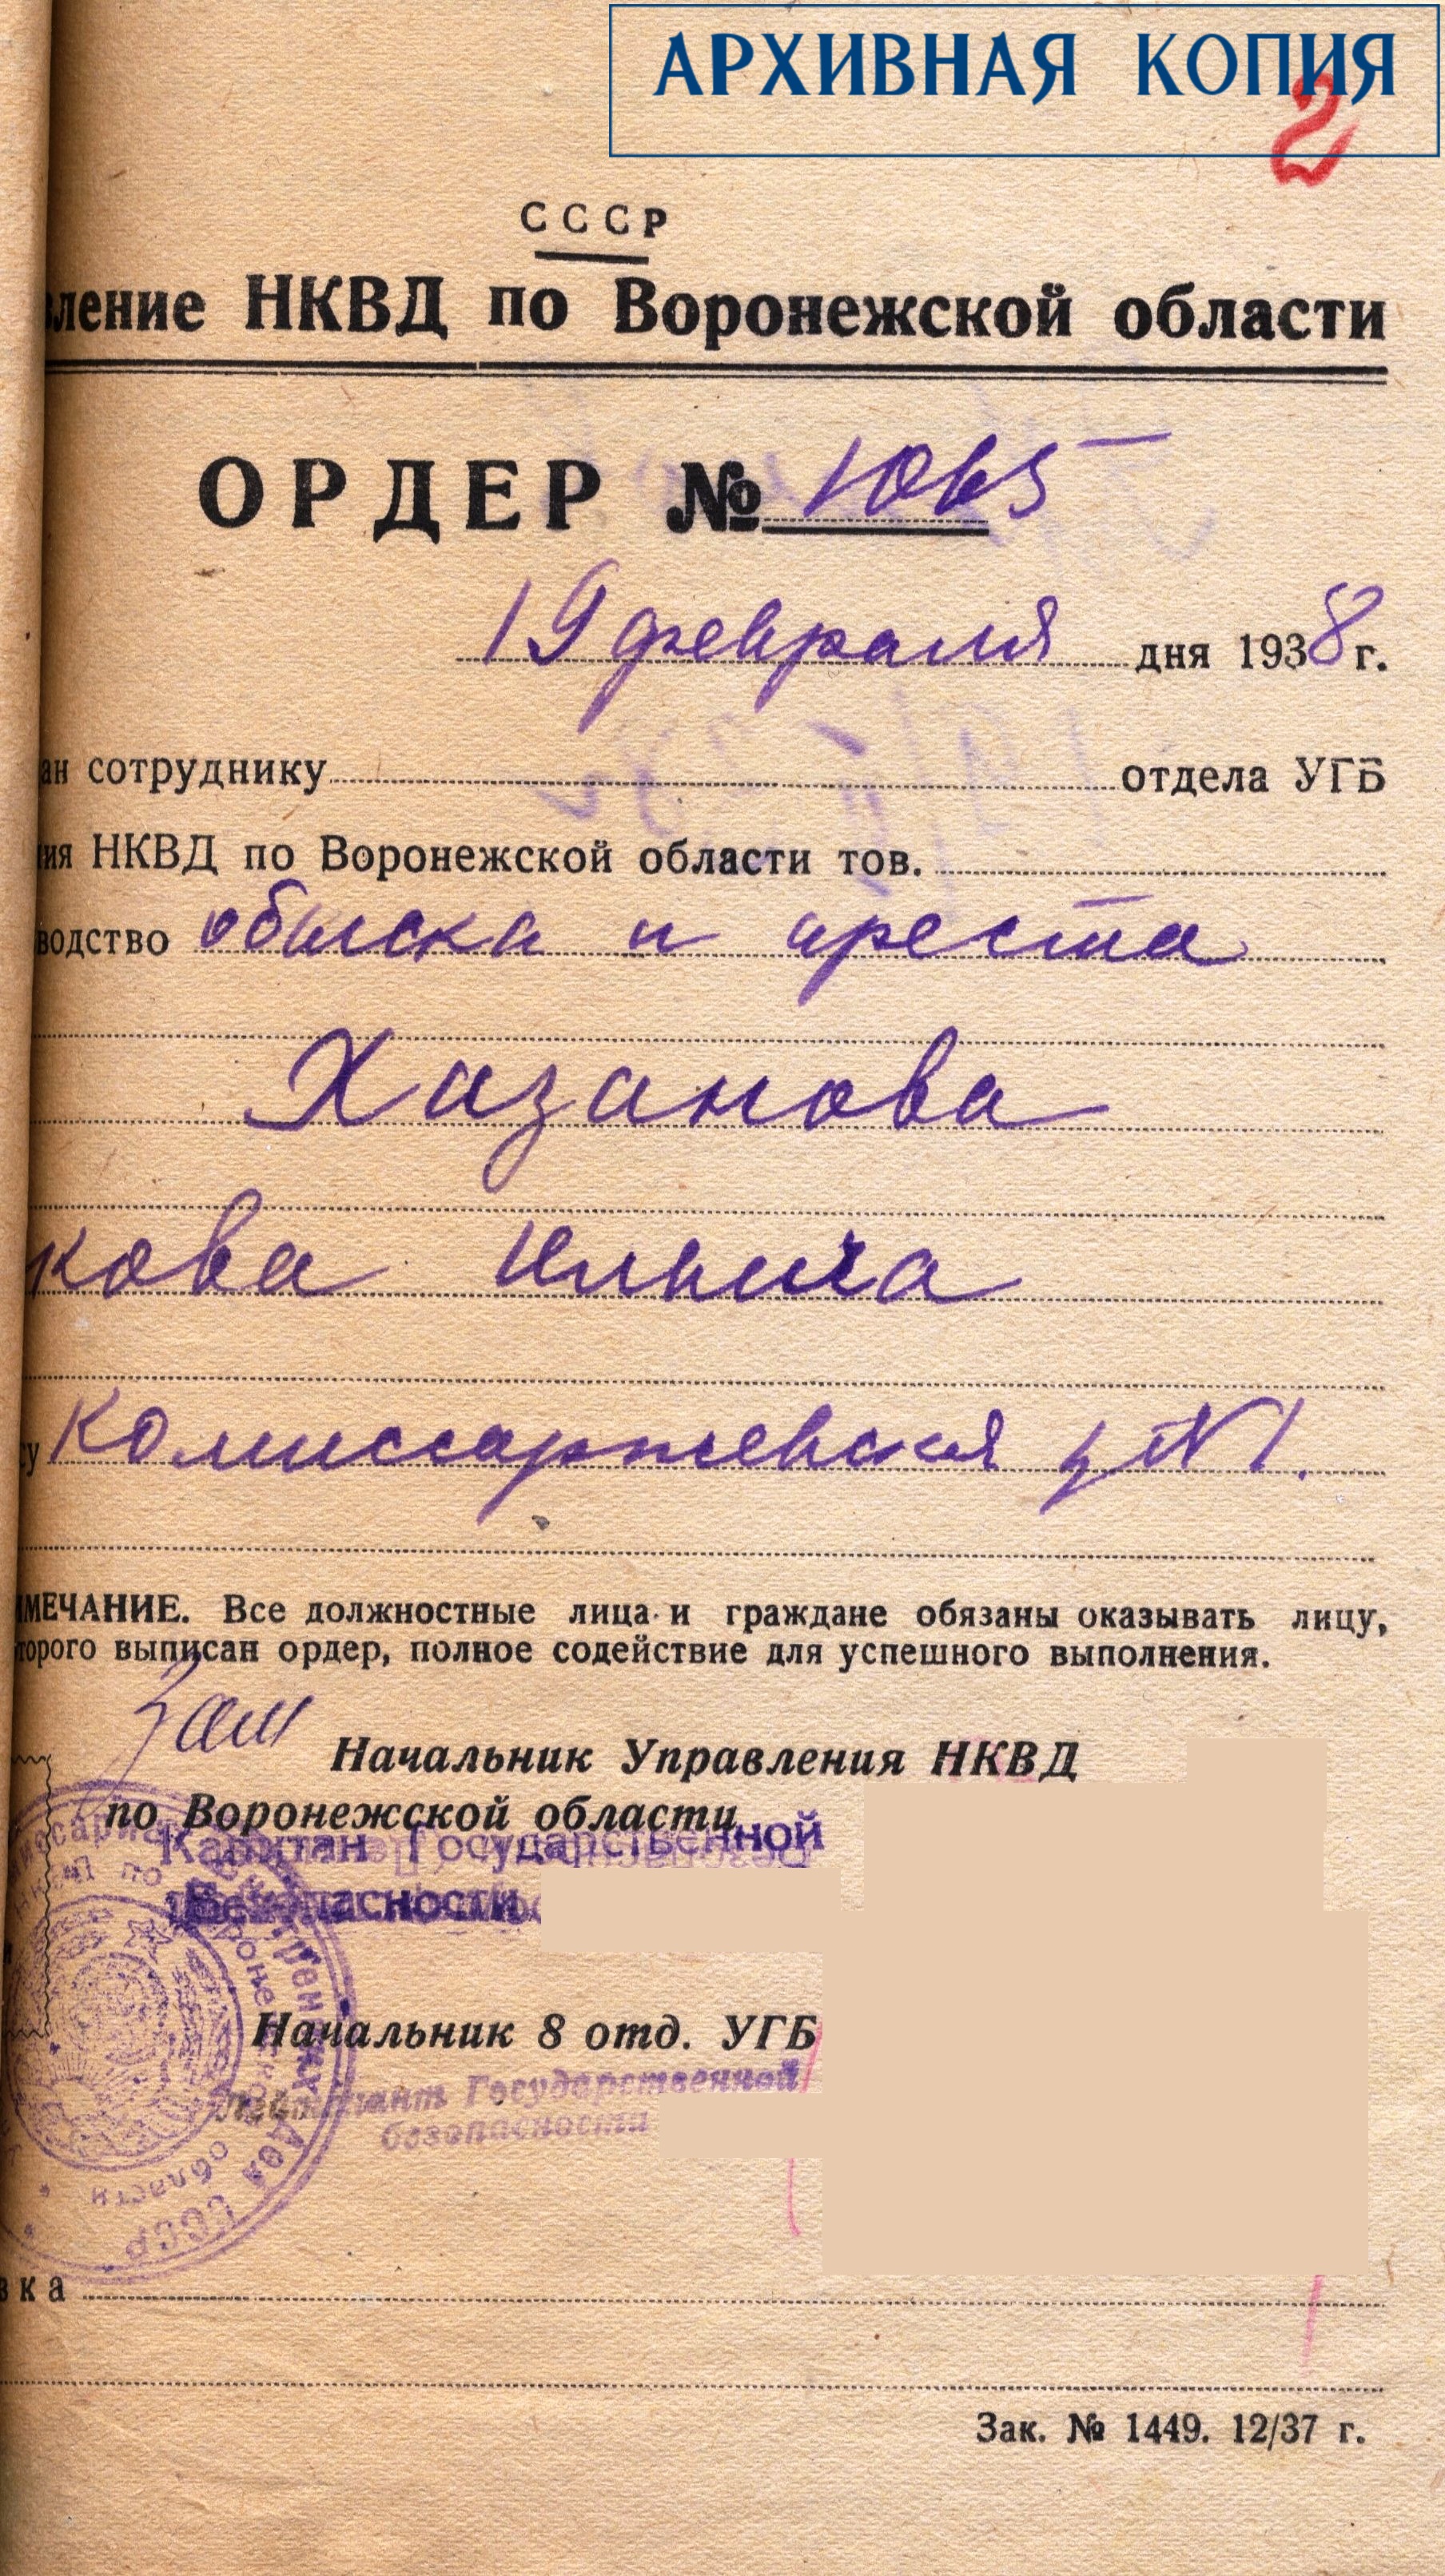 АРХИВНАЯ КОПИЯ
2
СССР
вление НКВД по Воронежской области
ОРДЕР № 1065
19 февраля дня 1938 г.
ан сотруднику отдела УГБ
ия НКВД по Воронежской области тов.
водство обыска и ареста
Хазанова
кова Ильича
су Комиссаржевская № 1.
ИМЕЧАНИЕ. Все должностные лица и граждане обязаны оказывать лицу,
торого выписан ордер, полное содействие для успешного выполнения.
Зам
Начальник Управления НКВД
по Воронежской области
Капитан Государственной
Безопасности
Начальник 8 отд. УГБ
Лейтенант Государственной
безопасности
вка
Зак. № 1449. 12/37 г.